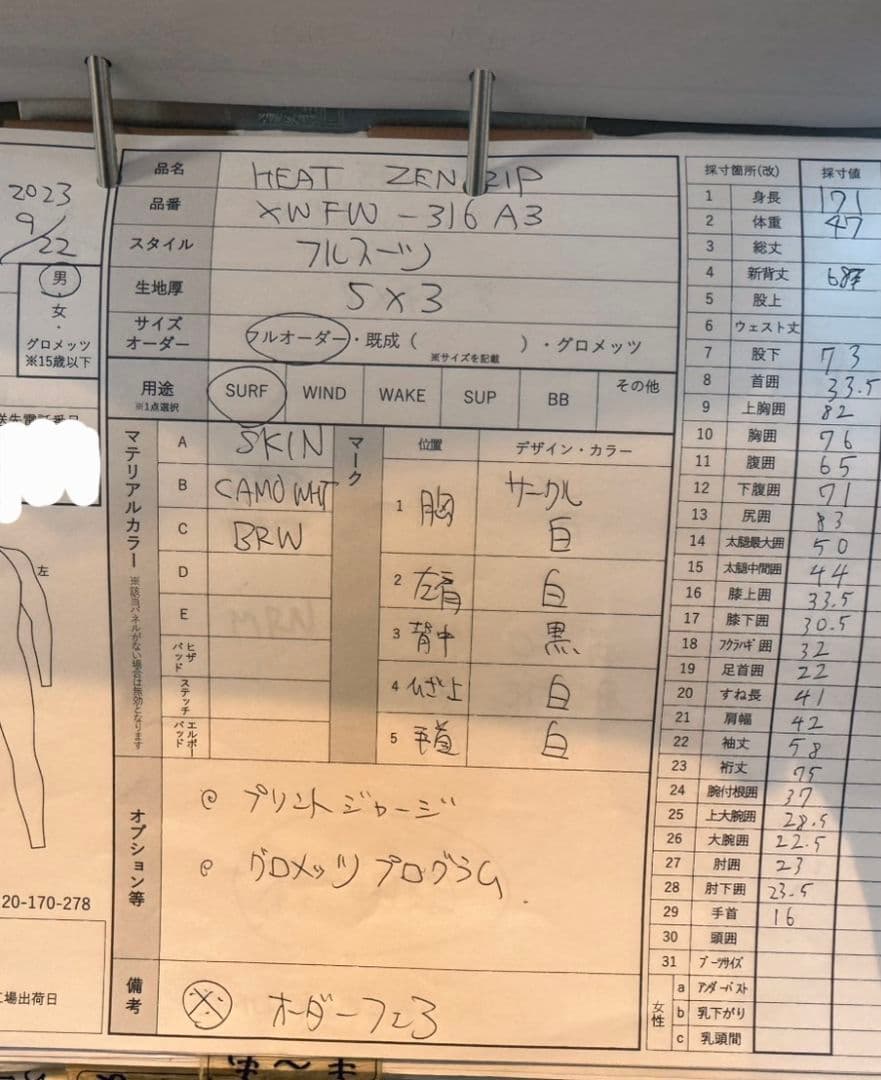 2023
9/22
男
・
女
・
グロメッツ
※15歳以下
左
20-170-278
場出荷日
品名 HEAT ZEN ZIP
品番 XWFW-316A3
スタイル フルスーツ
生地厚 5×3
サイズオーダー フルオーダー・既成( ※サイズを記載 )・グロメッツ
用途 ※1点選択 SURF WIND WAKE SUP BB その他
マテリアルカラー ※該当パネルがない場合は無効となります
A SKIN
B CAMO WHT
C BRW
D
E
ヒザパッド
ステッチ
エルボーパッド
マーク
位置 デザイン・カラー
1 胸 サークル 白
2 左肩 白
3 背中 黒
4 ひざ上 白
5 手首 白
オプション等
プリントジャージ
グロメッツプログラム
備考
※ オーダーフェア
採寸箇所(改) 採寸値
1 身長 171
2 体重 47
3 総丈
4 新背丈
5 股上
6 ウェスト丈
7 股下 73
8 首囲 33.5
9 上胸囲 82
10 胸囲 76
11 腹囲 65
12 下腹囲 71
13 尻囲 83
14 太腿最大囲 50
15 太腿中間囲 44
16 膝上囲 33.5
17 膝下囲 30.5
18 フクラハギ囲 32
19 足首囲 22
20 すね長 41
21 肩幅 42
22 袖丈 58
23 裄丈 75
24 腕付根囲 37
25 上大腕囲 28.5
26 大腕囲 22.5
27 肘囲 23
28 肘下囲 23.5
29 手首 16
30 頭囲
31 ブーツサイズ
女性
a アンダーバスト
b 乳下がり
c 乳頭間